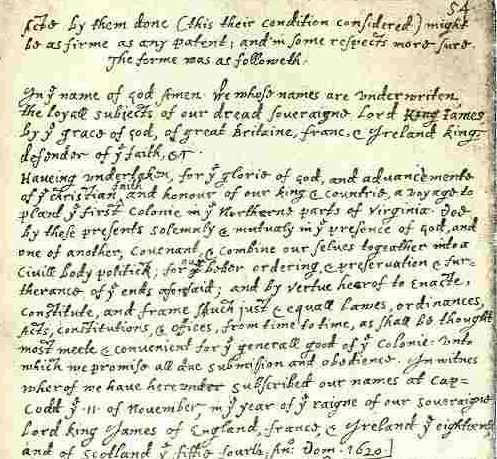 54
Acte by them done (this their condition considered) might
be as firme as any patent; and in some respects more sure.
The forme was as followeth.
In yͤ name of god Amen. We whose names are underwriten,
the loyall subjects of our dread soveraigne Lord King James
by yͤ grace of god, of great Britaine, franc, & Ireland king,
defender of yͤ faith, &c
Haveing undertaken, for yͤ glorie of god, and advancemente
of yͤ christian faith and honour of our king & countrie, a voyage to
plant yͤ first colonie in yͤ Northerne parts of Virginia. Doe
by these presents solemnly & mutualy in yͤ presence of god, and
one of another, covenant, & combine our selves togeather into a
Civill body politick; for our better ordering, & preservation & fur=
therance of yͤ ends aforesaid; and by vertue hearof to enacte,
constitute, and frame shuch just & equall lawes, ordinances,
Acts, constitutions, & offices, from time to time, as shall be thought
most meete & convenient for yͤ generall good of yͤ colonie: unto
which we promise all due submission and obedience. In witnes
wherof we have hereunder subscribed our names at Cap=
Codd yͤ ·11· of November, in yͤ year of yͤ raigne of our soveraigne
Lord king James of England, france, & Ireland yͤ eighteenth
and of Scotland yͤ fiftie fourth. Ano: Dom. 1620.]